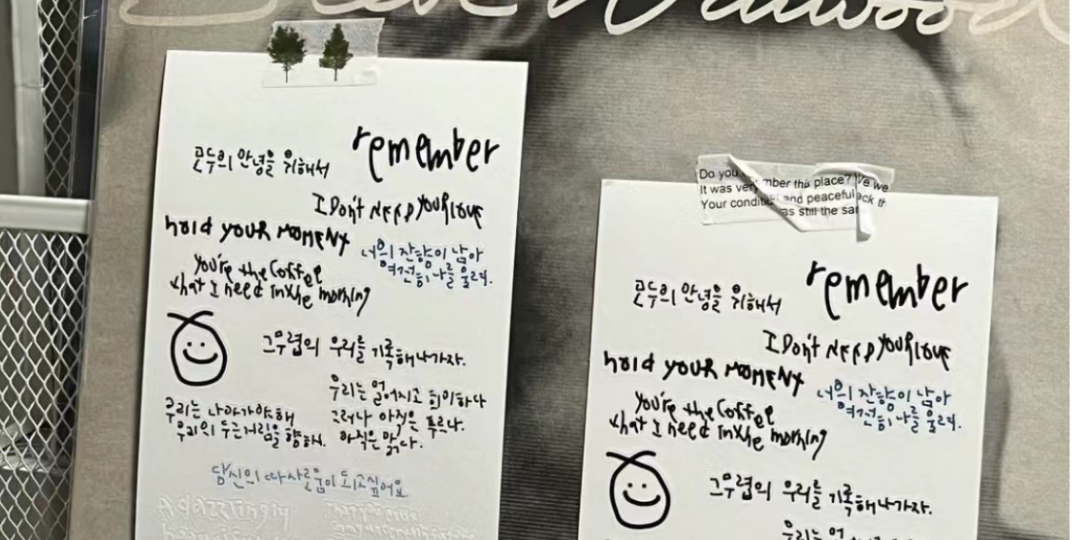 remember
모두의 안녕을 위해서
I Don't NEED YOUR LOVE
hold YOUR MOMENT
너의 잔향이 남아
여전히 나를 울려.
You're the Coffee
that I need in the morning
그무렵의 우리를 기록해나가자.
우리는 멀어지고 희미하다
우리는 나아가야해
그러나 아직은 푸르다.
우리의 두근거림을 향해서.
아직은 맑다.
당신의 따사로움이 되고싶어요
A dazzlingly
Do you
mber this place? We we
It was very
and peaceful
Your conditi
as still the sa
remember
모두의 안녕을 위해서
I Don't NEED YOUR LOVE
hold YOUR MOMENT
너의 잔향이 남아
여전히 나를 울려.
You're the Coffee
that I need in the morning
그무렵의 우리를 기록해나가자.
우리는